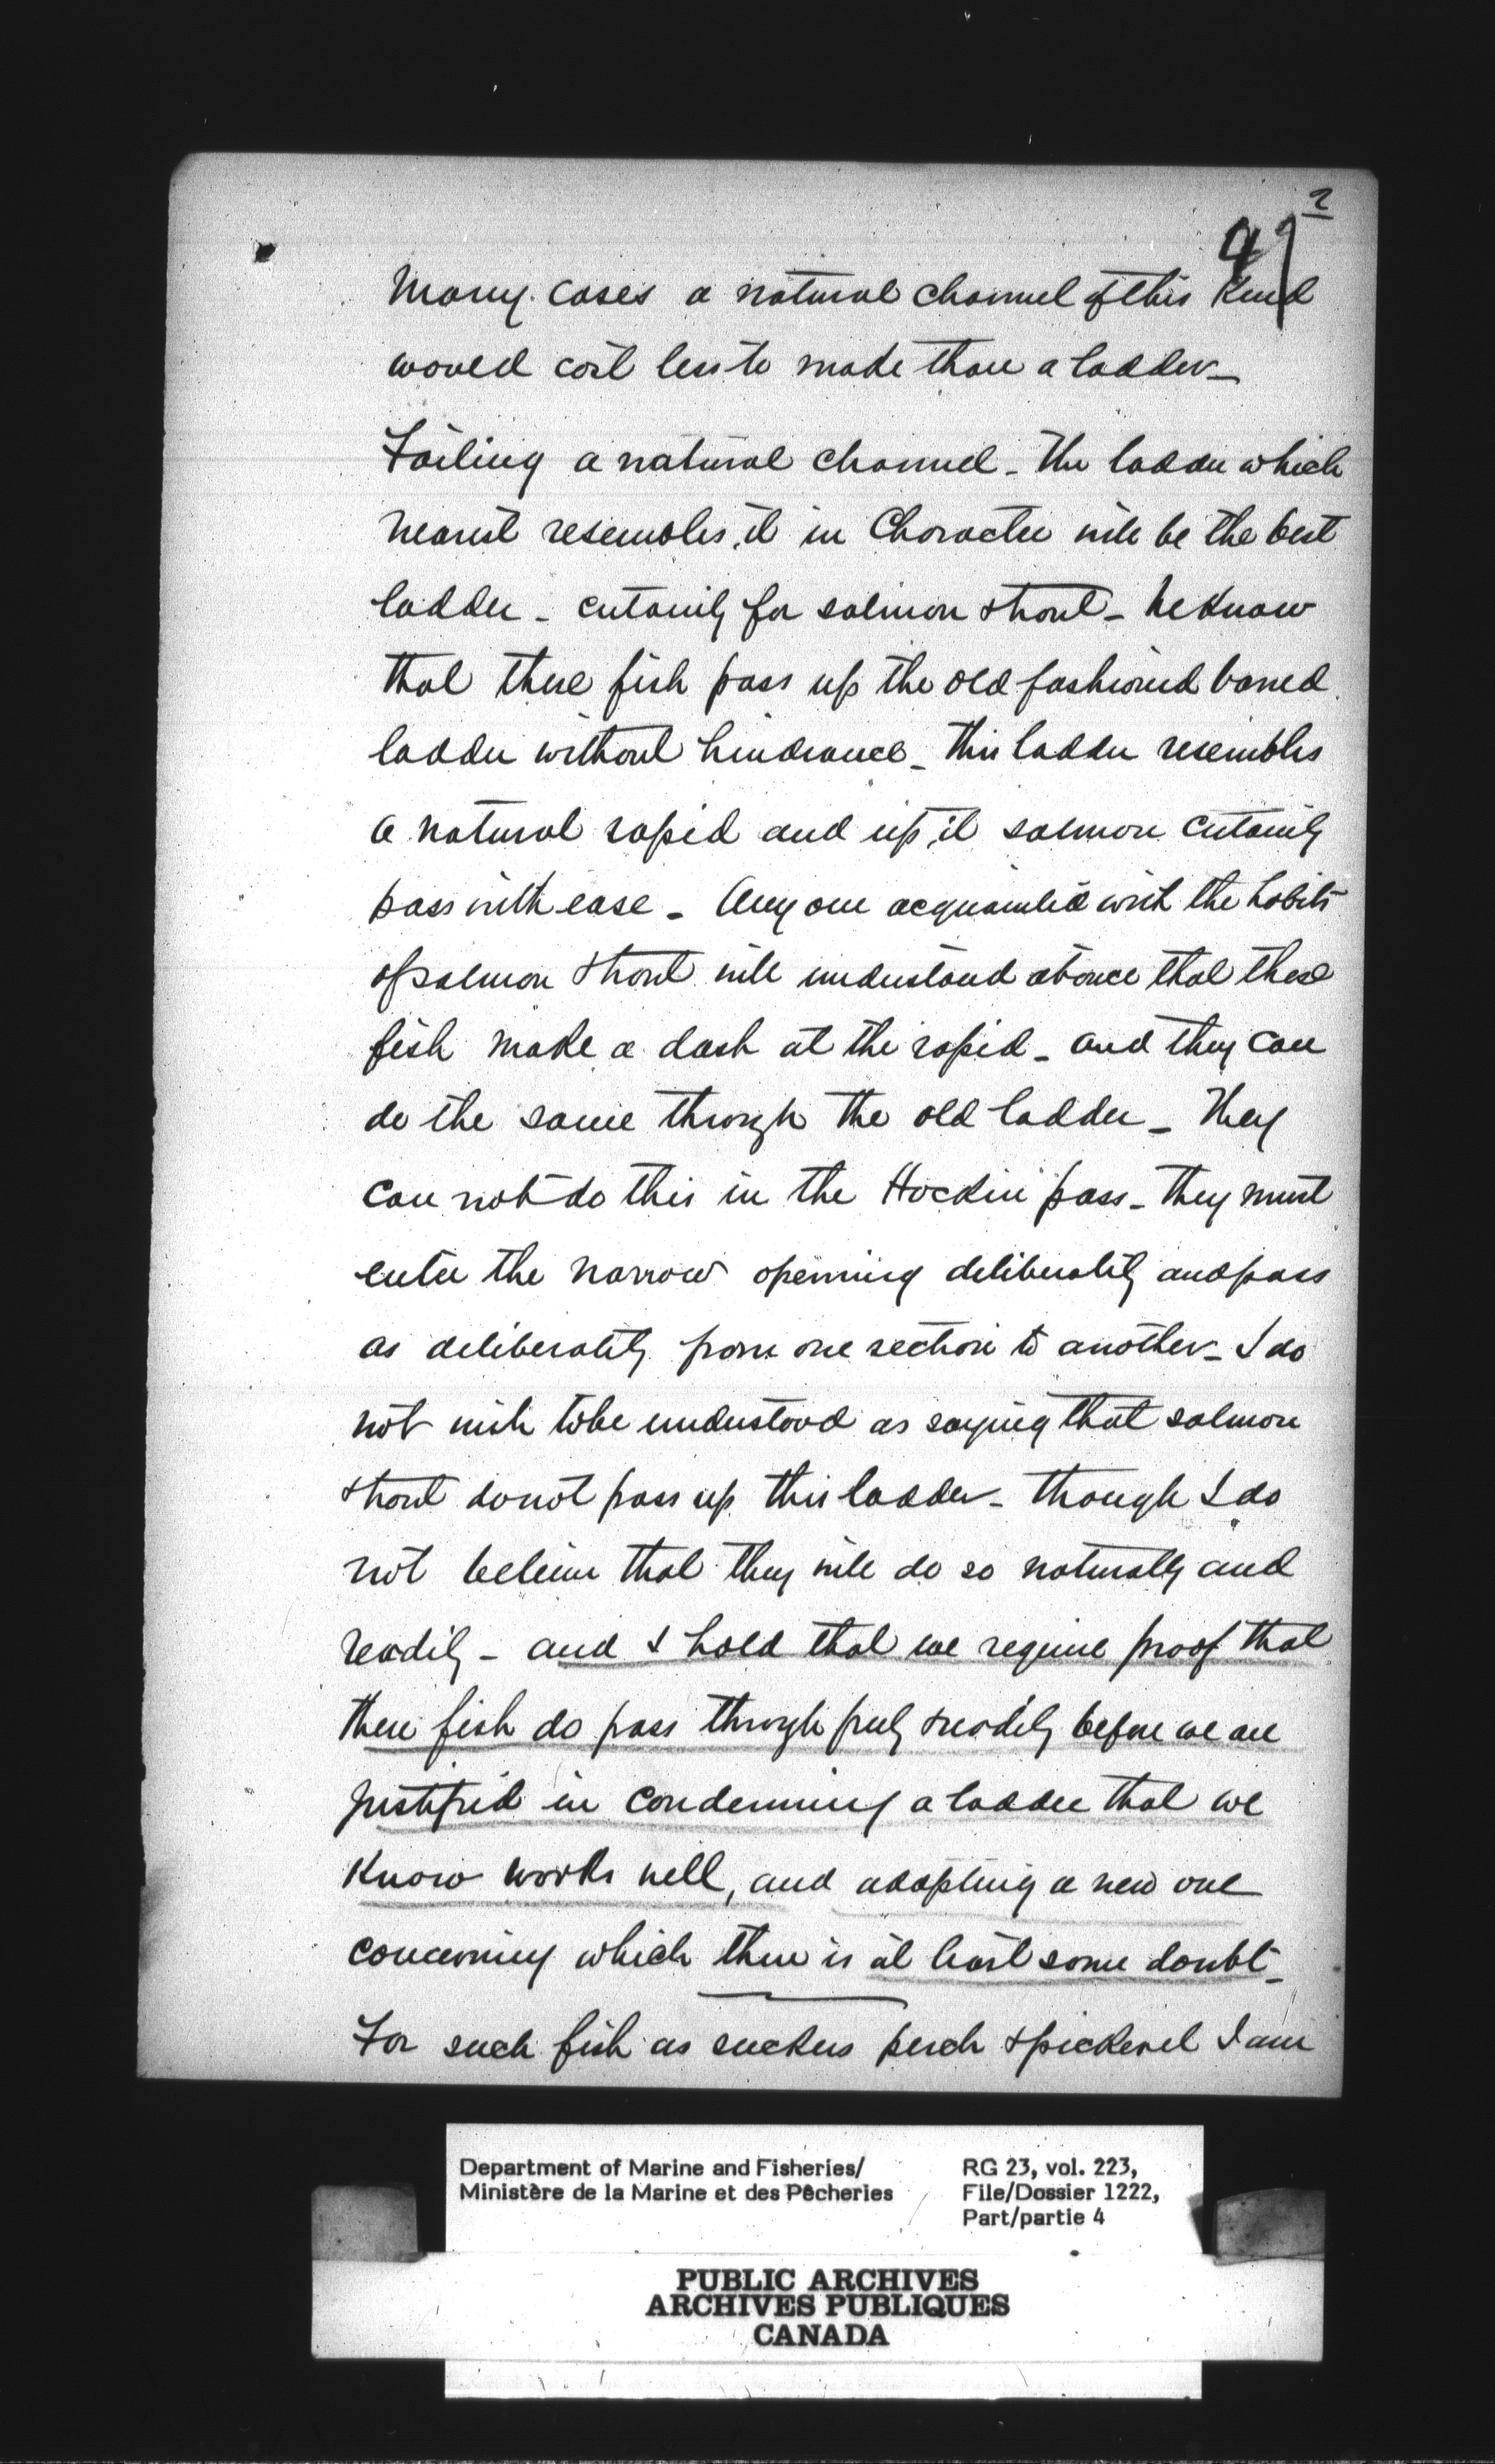 2
47
Many cases a natural channel of this kind
would cost less to make than a ladder—
Failing a natural channel — The ladder which
nearest resembles it in Character will be the best
ladder — certainly for salmon & trout — We know
that these fish pass up the old fashioned barred
ladder without hindrance — This ladder resembles
a natural rapid and up it salmon certainly
pass with ease — Any one acquainted with the habits
of salmon & trout will understand at once that these
fish make a dash at the rapid — and they can
do the same through the old ladder — They
can not do this in the Hockin pass — They must
enter the narrow openning deliberately and pass
as deliberately from one section to another — I do
not wish to be understood as saying that salmon
& trout do not pass up this ladder — though I do
not believe that they will do so naturally and
readily — and I hold that we require proof that
these fish do pass through freely & readily before we are
justified in condemning a ladder that we
know works well, and adopting a new one
concerning which there is at least some doubt —
For such fish as suckers perch & pickerel I am
Department of Marine and Fisheries/
Ministère de la Marine et des Pêcheries
RG 23, vol. 223,
File/Dossier 1222,
Part/partie 4
PUBLIC ARCHIVES
ARCHIVES PUBLIQUES
CANADA